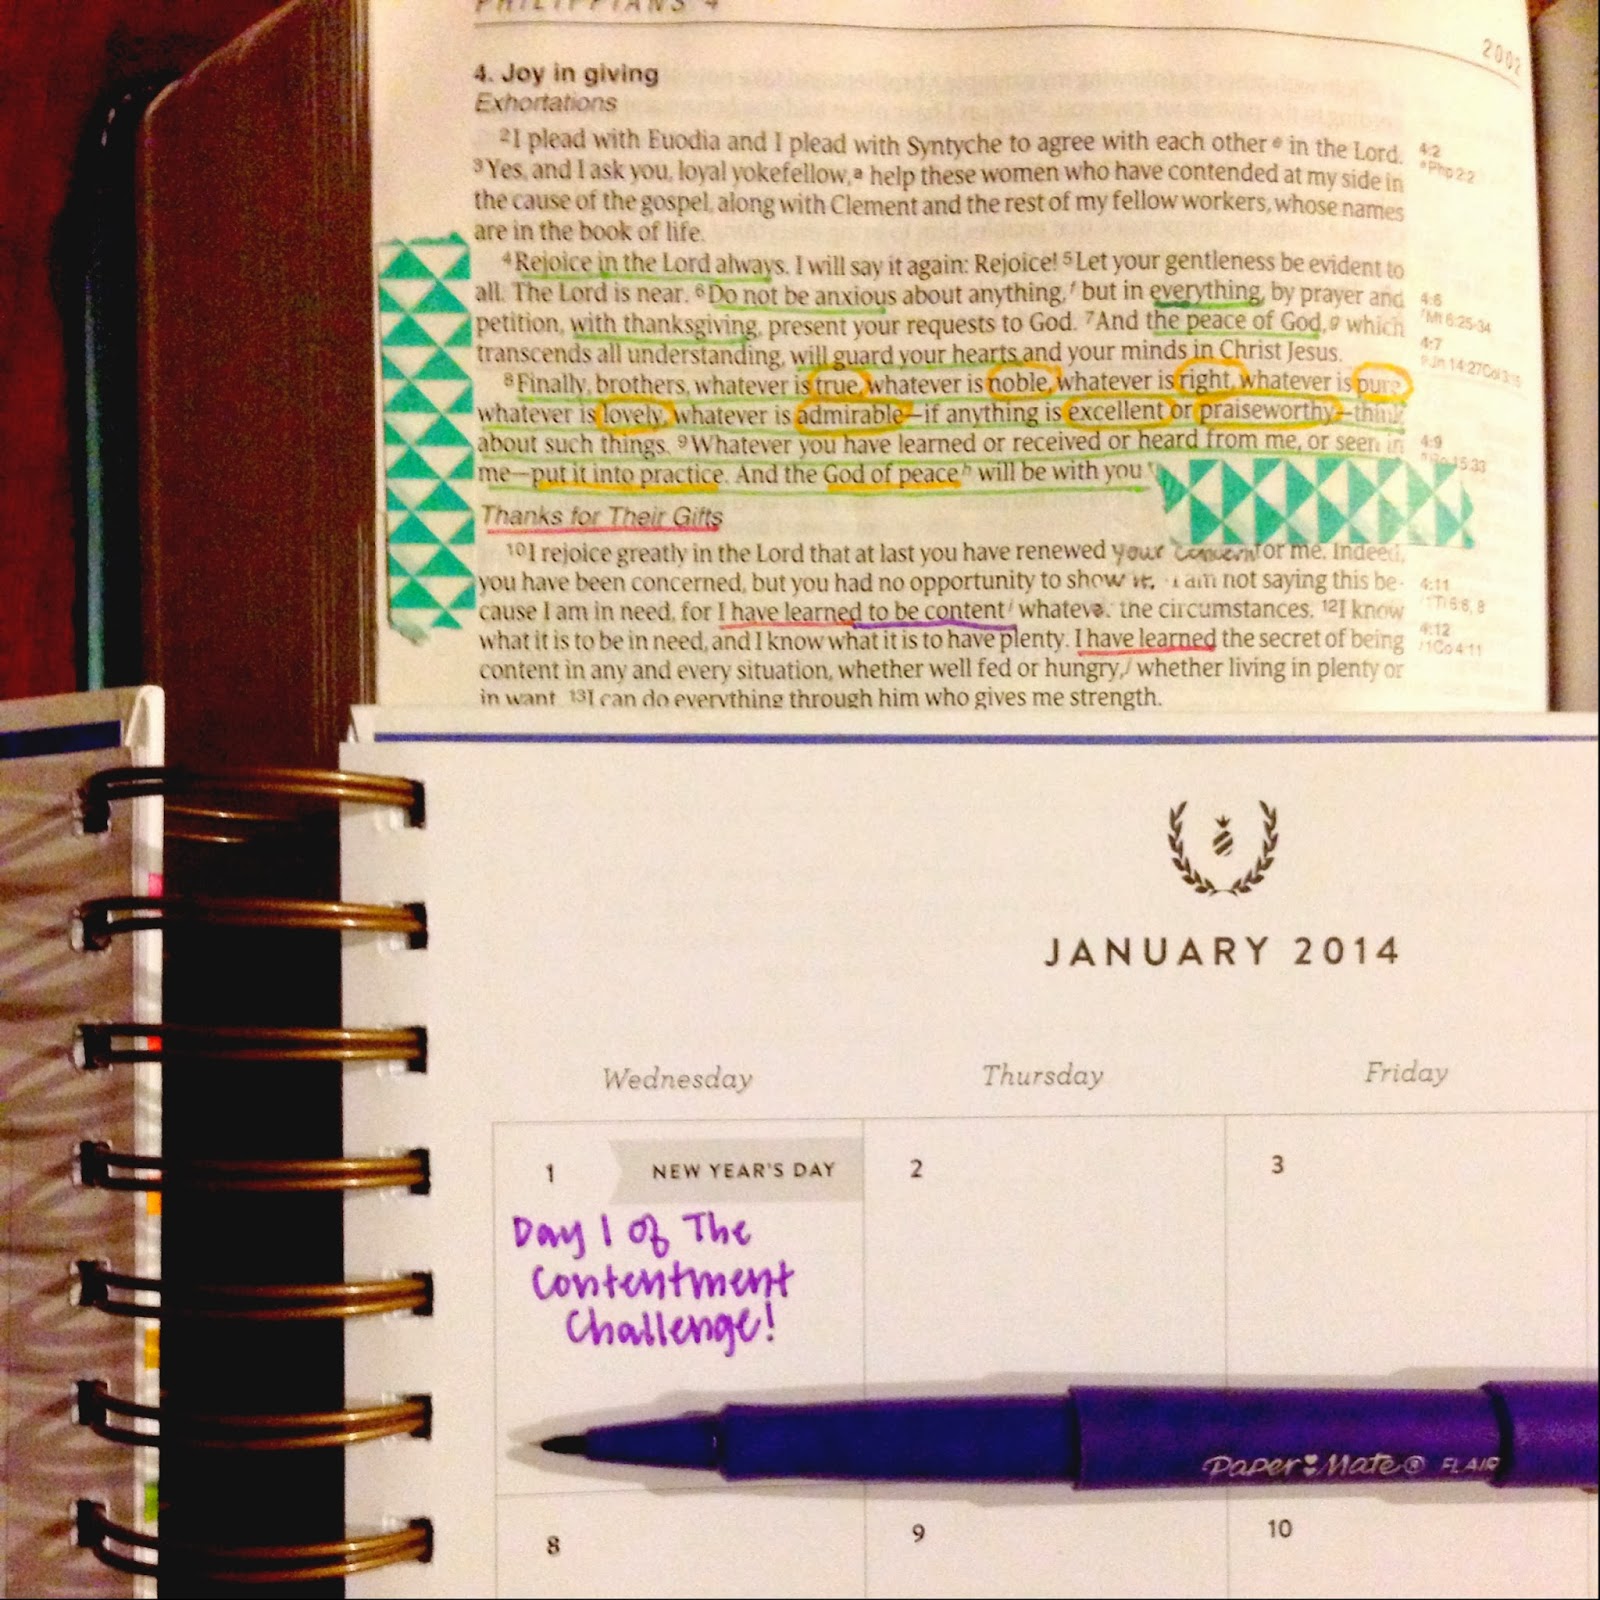 PHILIPPIANS 4
2002
4. Joy in giving
Exhortations
2I plead with Euodia and I plead with Syntyche to agree with each other e in the Lord.
3Yes, and I ask you, loyal yokefellow,a help these women who have contended at my side in
the cause of the gospel, along with Clement and the rest of my fellow workers, whose names
are in the book of life.
4Rejoice in the Lord always. I will say it again: Rejoice! 5Let your gentleness be evident to
all. The Lord is near. 6Do not be anxious about anything,f but in everything, by prayer and
petition, with thanksgiving, present your requests to God. 7And the peace of God,g which
transcends all understanding, will guard your hearts and your minds in Christ Jesus.
8Finally, brothers, whatever is true, whatever is noble, whatever is right, whatever is pure,
whatever is lovely, whatever is admirable—if anything is excellent or praiseworthy—think
about such things. 9Whatever you have learned or received or heard from me, or seen in
me—put it into practice. And the God of peace h will be with you
Thanks for Their Gifts
10I rejoice greatly in the Lord that at last you have renewed your concern for me. Indeed,
you have been concerned, but you had no opportunity to show it. I am not saying this be-
cause I am in need, for I have learned to be content i whatever the circumstances. 12I know
what it is to be in need, and I know what it is to have plenty. I have learned the secret of being
content in any and every situation, whether well fed or hungry,j whether living in plenty or
in want. 13I can do everything through him who gives me strength.
4:2
e Php 2:2
4:6
f Mt 6:25-34
4:7
g Jn 14:27
4:9
15:33
4:11
i 1Ti 6:6, 8
4:12
j 1Co 4:11
JANUARY 2014
Wednesday Thursday Friday
1 NEW YEAR'S DAY 2 3
Day 1 of The
Contentment
Challenge!
Paper Mate® FLAIR
8 9 10